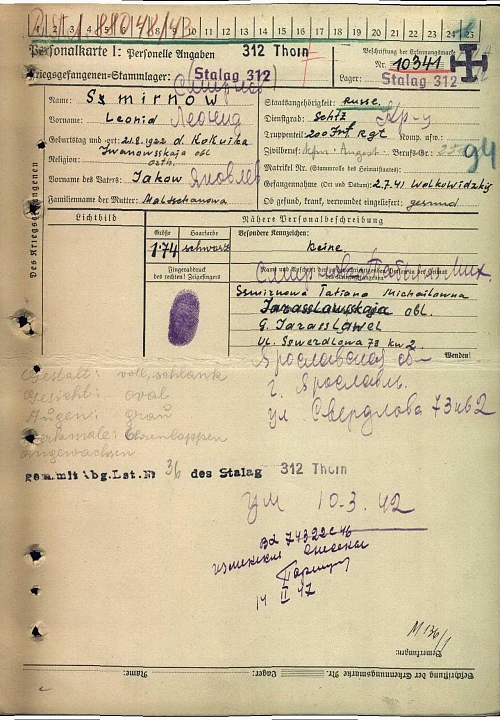 1 2 3 4 5 6 7 8 9 10 11 12 13 14 15 16 17 18 19 20 21 22 23 24 25
Personalkarte I: Personelle Angaben 312 Thorn
Beschriftung der Erkennungsmarke
Kriegsgefangenen-Stammlager: Stalag 312
Nr. 10341
Lager: Stalag 312
Des Kriegsgefangenen
Name: Smirnow
Vorname: Leonid Леонид
Geburtstag und -ort: 21.8.1922 d. Kokuika
Iwanowskaja obl
Religion: orth.
Vorname des Vaters: Jakow Яковлев
Familienname der Mutter: Maltschanowa
Staatsangehörigkeit: Russe.
Dienstgrad: Schtz Кр-ц
Truppenteil: 200 Inf. Rgt Komp. usw.:
Zivilberuf: Berufs-Gr.:
Matrikel Nr. (Stammrolle des Heimatstaates):
Gefangennahme (Ort und Datum): 2.7.41 Wolkowidzkij
Ob gesund, krank, verwundet eingeliefert: gesund
94
Lichtbild
Nähere Personalbeschreibung
Größe Haarfarbe Besondere Kennzeichen:
1.74 schwarz keine
Fingerabdruck
des rechten Zeigefingers
Name und Anschrift der zu benachrichtigenden Person in der Heimat
Smirnowa Tatiana Michailowna
Jarasslawskaja obl.
G. Jarasslawel
Ul. Swerdlowa 73 kw 2.
Wenden!
Ярославская об-
г. Ярославль
ул Свердлова 73 кв 2
Gestalt: voll, schlank
Gesicht: oval
Augen: grau
Merkmale: Ohrenlappen
angewachsen
gem. mit Abg. Lst. Nr 36 des Stalag 312 Thorn
ум 10.3.42
14 II 47
M 136/1
Bemerkungen:
Beschriftung der Erkennungsmarke Nr. Lager: Name: